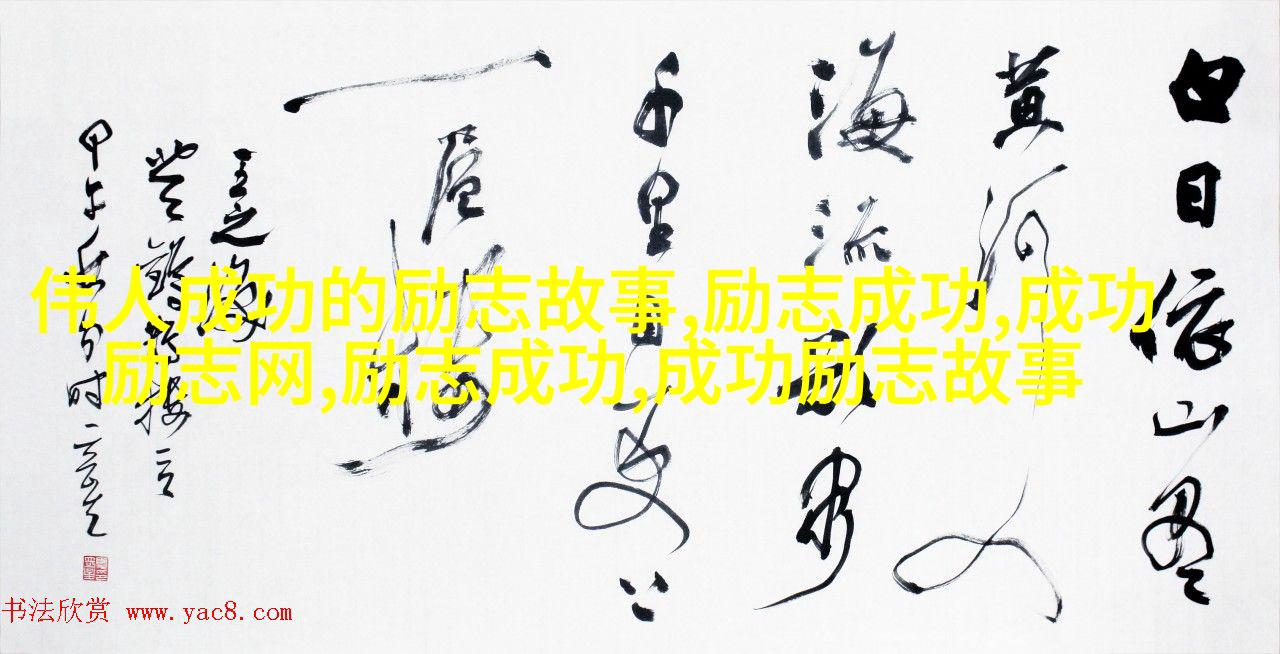 白日依山尽
黄河入
海流欲穷
千里目更上
一层楼
王之涣
登鹳雀楼
甲午
伟人成功的励志故事,励志成功,成功
励志网,励志成功,成功励志故事
书法欣赏 www.yac8.com